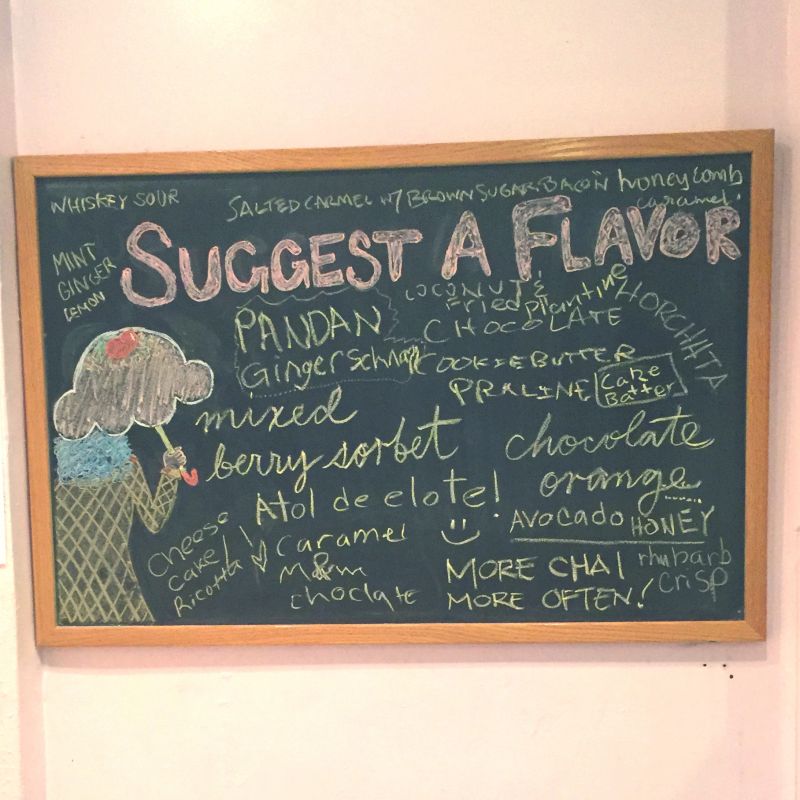 WHISKEY SOUR
SALTED CARMEL W/ BROWN SUGAR BACON
honeycomb
caramel
MINT
GINGER
LEMON
SUGGEST A FLAVOR
PANDAN
Ginger schnapp
COCONUT &
Fried plantine
CHOCOLATE
HORCHATA
COOKIE BUTTER
PRALINE
Cake
Batter
mixed
berry sorbet
chocolate
orange
Atol de elote!
AVOCADO HONEY
Cheese
cake/
Ricotta
caramel
M&m
choclate
MORE CHAI
MORE OFTEN!
rhubarb
crisp